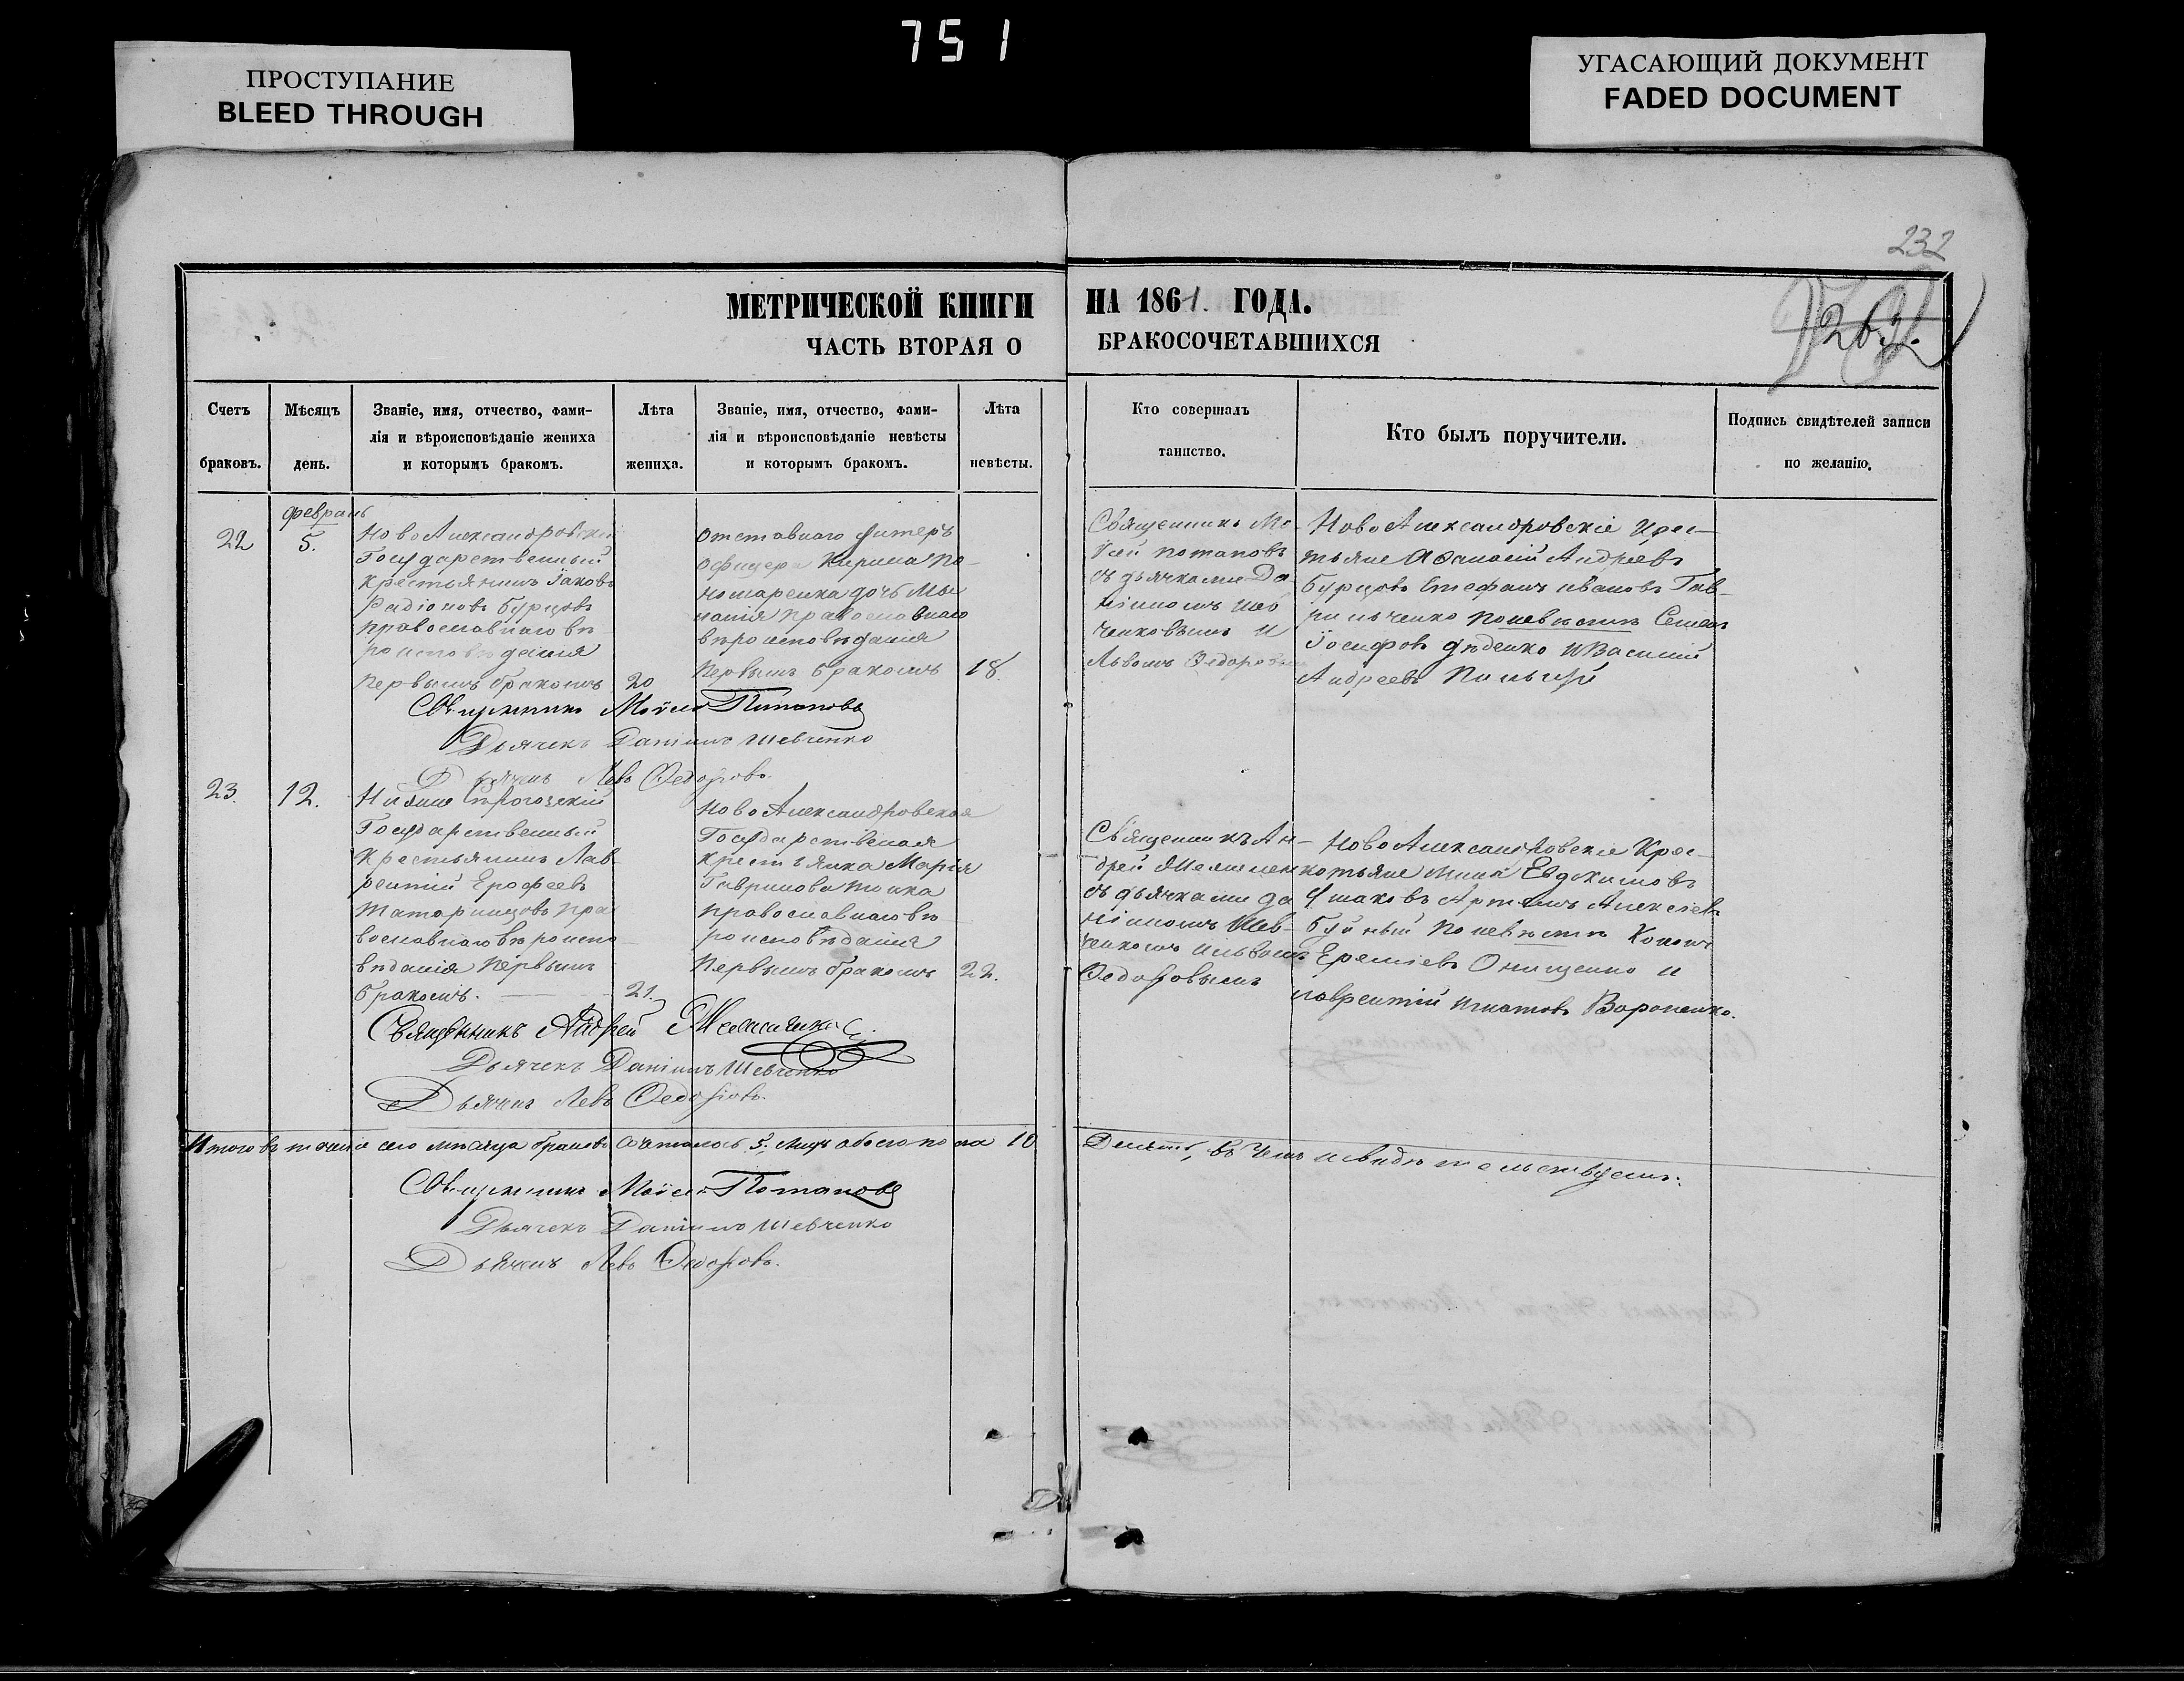 751
ПРОСТУПАНИЕ
BLEED THROUGH
УГАСАЮЩИЙ ДОКУМЕНТ
FADED DOCUMENT
232
МЕТРИЧЕСКОЙ КНИГИ
ЧАСТЬ ВТОРАЯ О
НА 1861. ГОДА.
БРАКОСОЧЕТАВШИХСЯ
Счетъ
браковъ.
Мѣсяцъ
день.
Званіе, имя, отчество, фами-
лія и вѣроисповѣданіе жениха
и которымъ бракомъ.
Лѣта
жениха.
Званіе, имя, отчество, фами-
лія и вѣроисповѣданіе невѣсты
и которымъ бракомъ.
Лѣта
невѣсты.
Кто совершалъ
таинство.
Кто былъ поручители.
Подпись свидѣтелей записи
по желанію.
22
февраль
5.
НовоАлександровскій
Государственный
крестьянинъ Іаковъ
Радіоновъ Бурцовъ
православнаго вѣ
роисповѣданія
первымъ бракомъ
20
отставнаго унтеръ
офицера Кирила По-
номаренка дочь Ме
ланія православнаго
вѣроисповѣданія
первымъ бракомъ
18.
Священникъ Мо-
ѵсей Потаповъ
съ дьячками Да
ніиломъ Шев
ченковымъ и
Львомъ Ѳедоровымъ
НовоАлександровскіе крес-
тьяне Аѳанасій Андреевъ
Бурцовъ Стефанъ Ивановъ Гав-
рильченко по невѣстѣ Семенъ
Іосифовъ Дѣденко и Василій
Андреевъ
Священникъ Моѵсей Потаповъ
Дьячекъ Даніилъ Шевченко
Дьячекъ Левъ Ѳедоровъ.
23.
12.
Нижне Сѣрогозскій
Государственный
крестьянинъ Лав-
рентій Ерофеевъ
Татаринцовъ пра
вославнаго вѣроиспо
вѣданія первымъ
бракомъ.
21.
НовоАлександровская
Государственая
крестьянка Марія
Гаврилова
православнаго вѣ
роисповѣданія
первымъ бракомъ
22.
Священникъ Ан-
дрей
съ дьячками Да
ніиломъ Шев-
ченкомъ и Львомъ
Ѳедоровымъ
НовоАлександровскіе крес-
тьяне Мина Евдокимовъ
Ушаковъ Артемъ Алексѣевъ
Буйный по невѣстѣ Кононъ
Еремѣевъ Онищенко и
Лаврентій Игнатовъ Вороненко.
Священникъ Андрей
Дьячекъ Даніилъ Шевченко
Дьячекъ Левъ Ѳедоровъ.
Итого въ теченіе сего мѣсяца браковъ сочеталось 5. лицъ обоего пола 10
Десять, въ чемъ и свидѣтельствуемъ.
Священникъ Моѵсей Потаповъ
Дьячекъ Даніилъ Шевченко
Дьячекъ Левъ Ѳедоровъ.